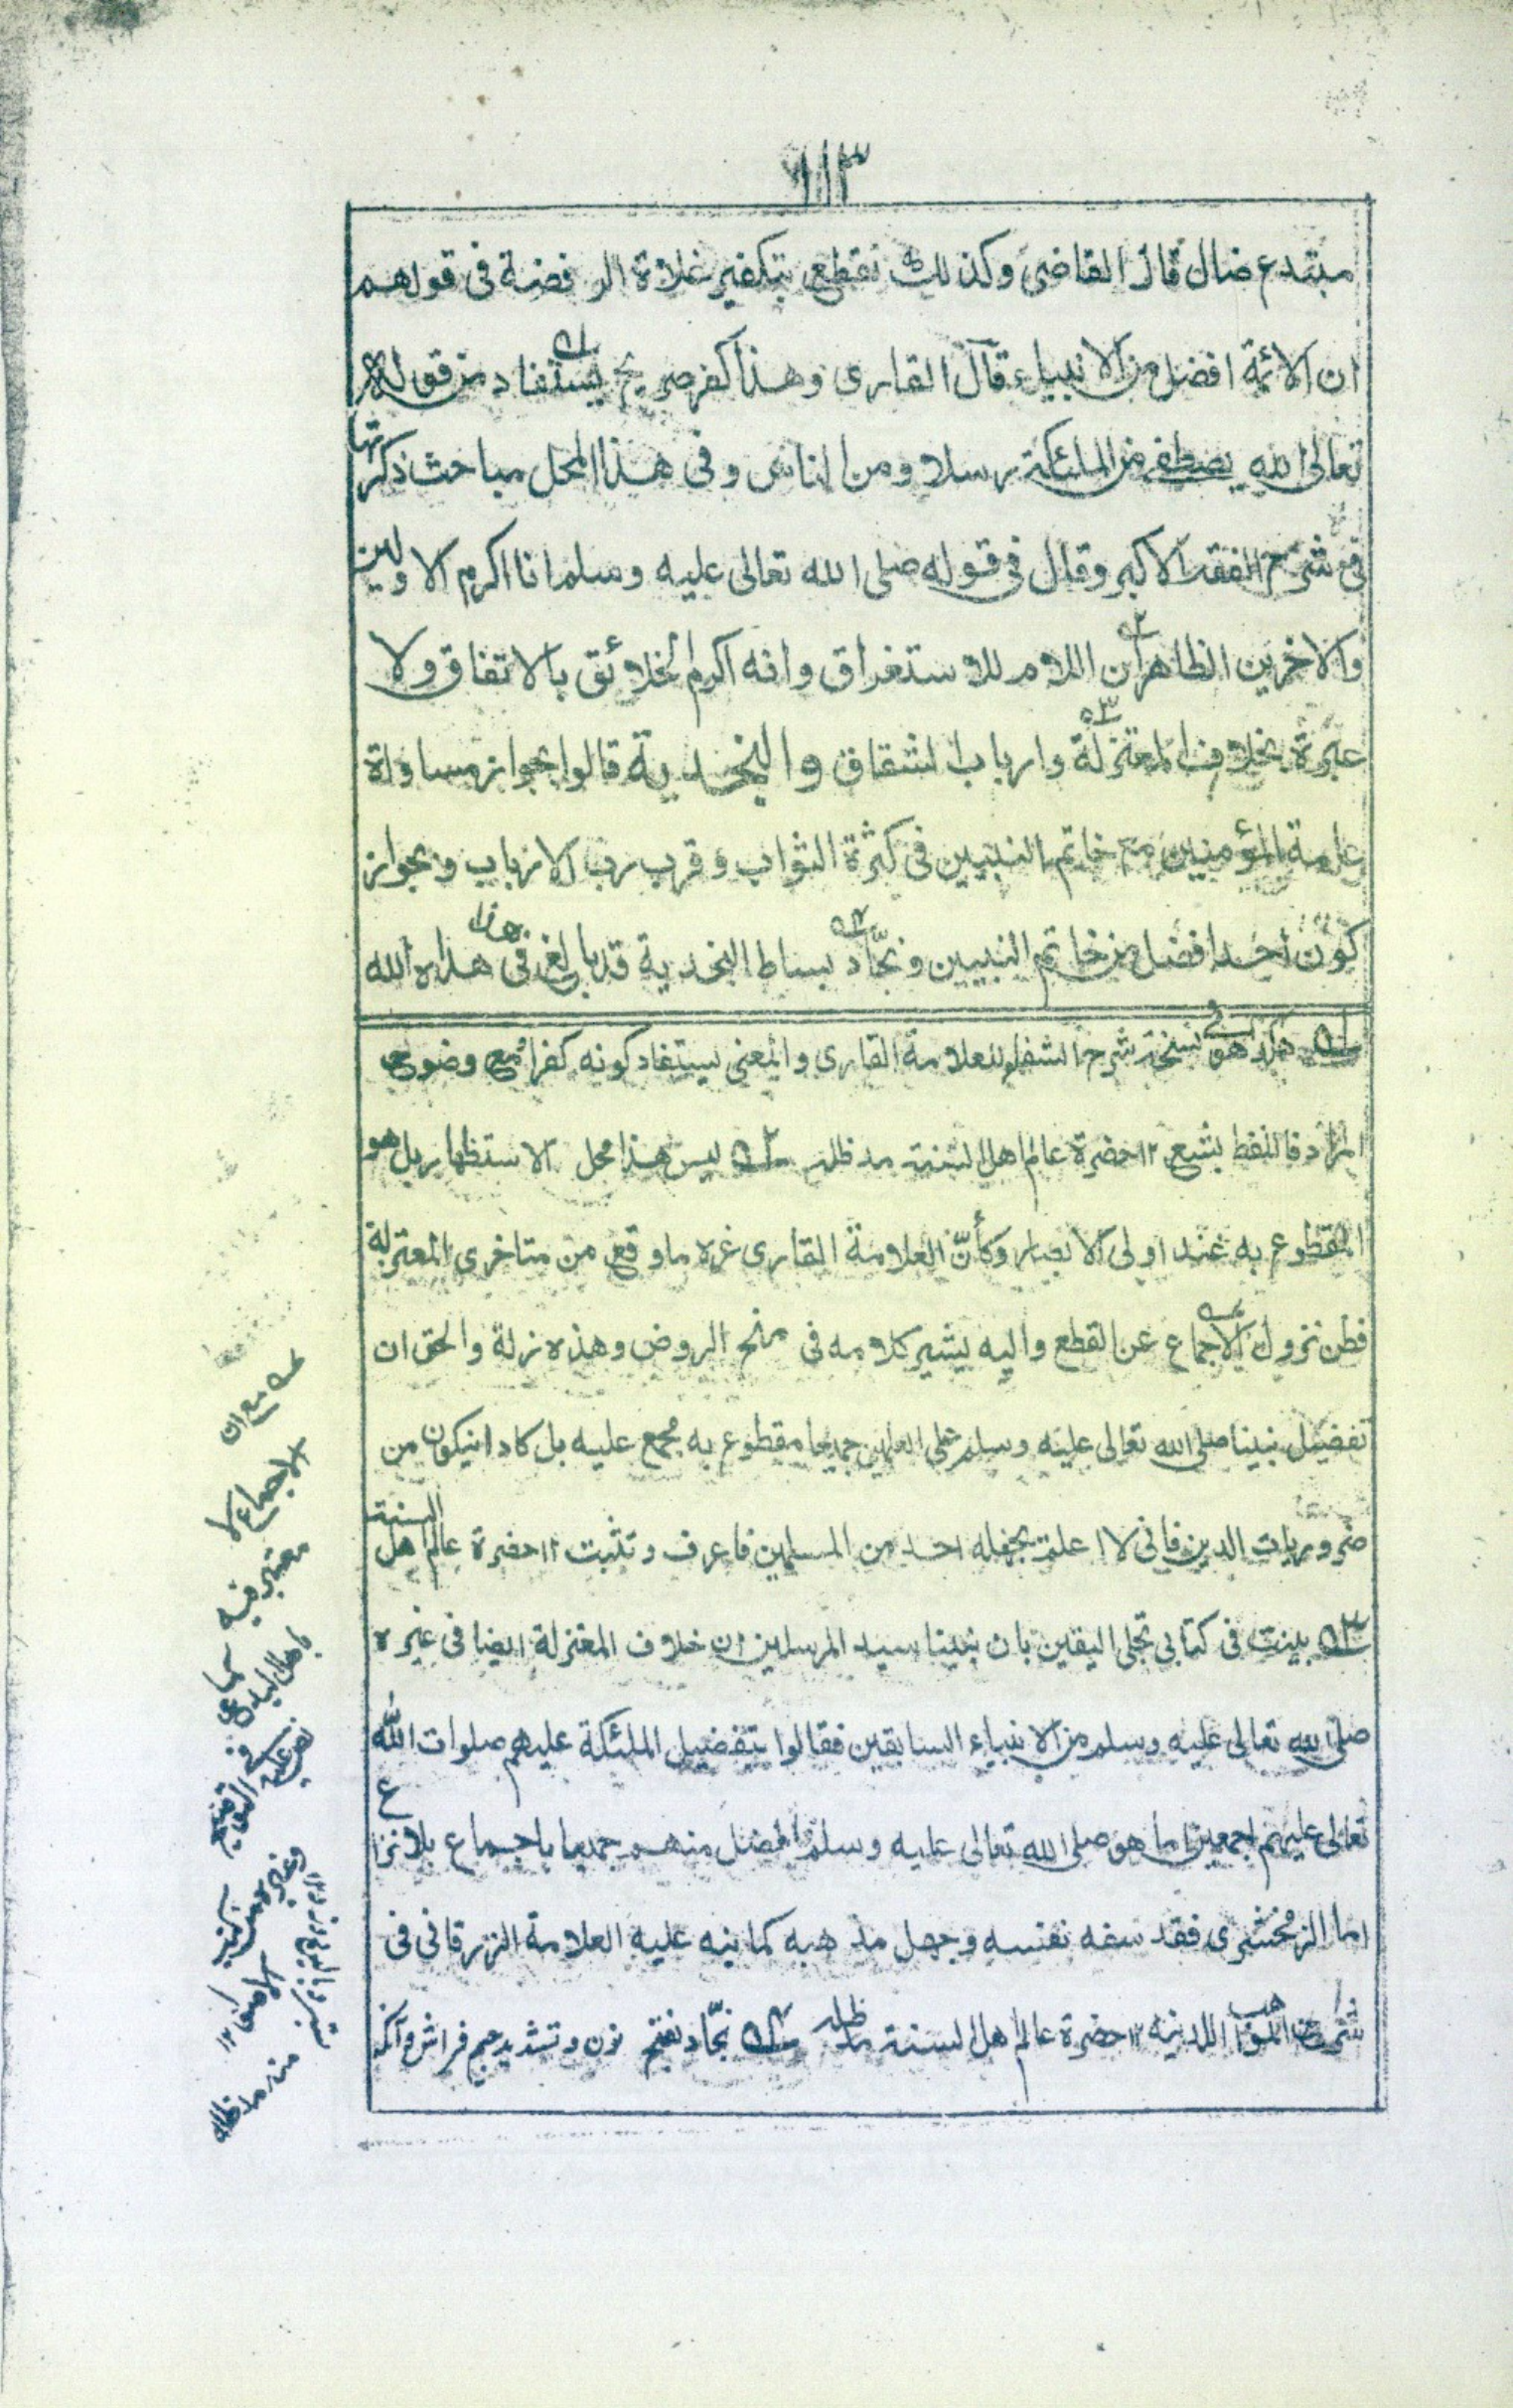 ١١٣
مبتدع ضال قال القاضى وكذلك نقطع بتكفير غلاة الرفضة فى قولهم
ان الائمة افضل من الانبياء قال القارى وهذا كفر صريح يستفاد من قوله
تعالى الله يصطفى من الملئكة رسلا ومن الناس وفى هذا المحل مباحث ذكرتها
فى شرح الفقه الاكبر وقال فى قوله صلى الله تعالى عليه وسلم انا اكرم الاولين
والاخرين الظاهر ان اللام للاستغراق وانه اكرم الخلائق بالاتفاق ولا
عبرة بخلاف المعتزلة وارباب الشقاق والنجدية قالوا بجواز مساواة
عامة المؤمنين مع خاتم النبيين فى كثرة الثواب وقرب رب الارباب وبجواز
كون احد افضل من خاتم النبيين ونجّاد بساط النجدية قد بالغ فى هذا هداه الله
له هكذا هو فى نسخة شرح الشفاء للعلامة القارى والمعنى يستفاد كونه كفرا مع وضوح
المراد فاللفظ بشع ١٢ حضرة عالم اهل السنة مد ظله ٢ه ليس هذا محل الاستظهار بل هو
المقطوع به عند اولى الابصار وكأنّ العلامة القارى غره ما وقع من متاخرى المعتزلة
فظن نزول الاجماع عن القطع واليه يشير كلامه فى منح الروض وهذه زلة والحق ان
تفضيل نبينا صلى الله تعالى عليه وسلم على العلمين جميعا مقطوع به مجمع عليه بل كاد ان يكون من
ضروريات الدين فانى لا اعلم بجهله احد من المسلمين فاعرف وتثبت ١٢ حضرة عالم اهل السنة
٣ه بينت فى كتابى تجلى اليقين بان نبينا سيد المرسلين ان خلاف المعتزلة ايضا فى غيره
صلى الله تعالى عليه وسلم من الانبياء السابقين فقالوا بتفضيل الملئكة عليهم صلوات الله
تعالى عليهم اجمعين اما هو صلى الله تعالى عليه وسلم افضل منهم جميعا باجماع بلا نزاع
اما الزمخشرى فقد سفه نفسه وجهل مذهبه كما نبه عليه العلامة الزرقانى فى
شرح المواهب اللدنيه ١٢ حضرة عالم اهل السنة مد ظله ٤ه نجّاد بفتح نون وتشديد جيم فراش
له مع ان
الاجماع لا
معتبر فيه
باهل البدع كما
نص عليه فى التوضيح
وغيره
منه مد ظله